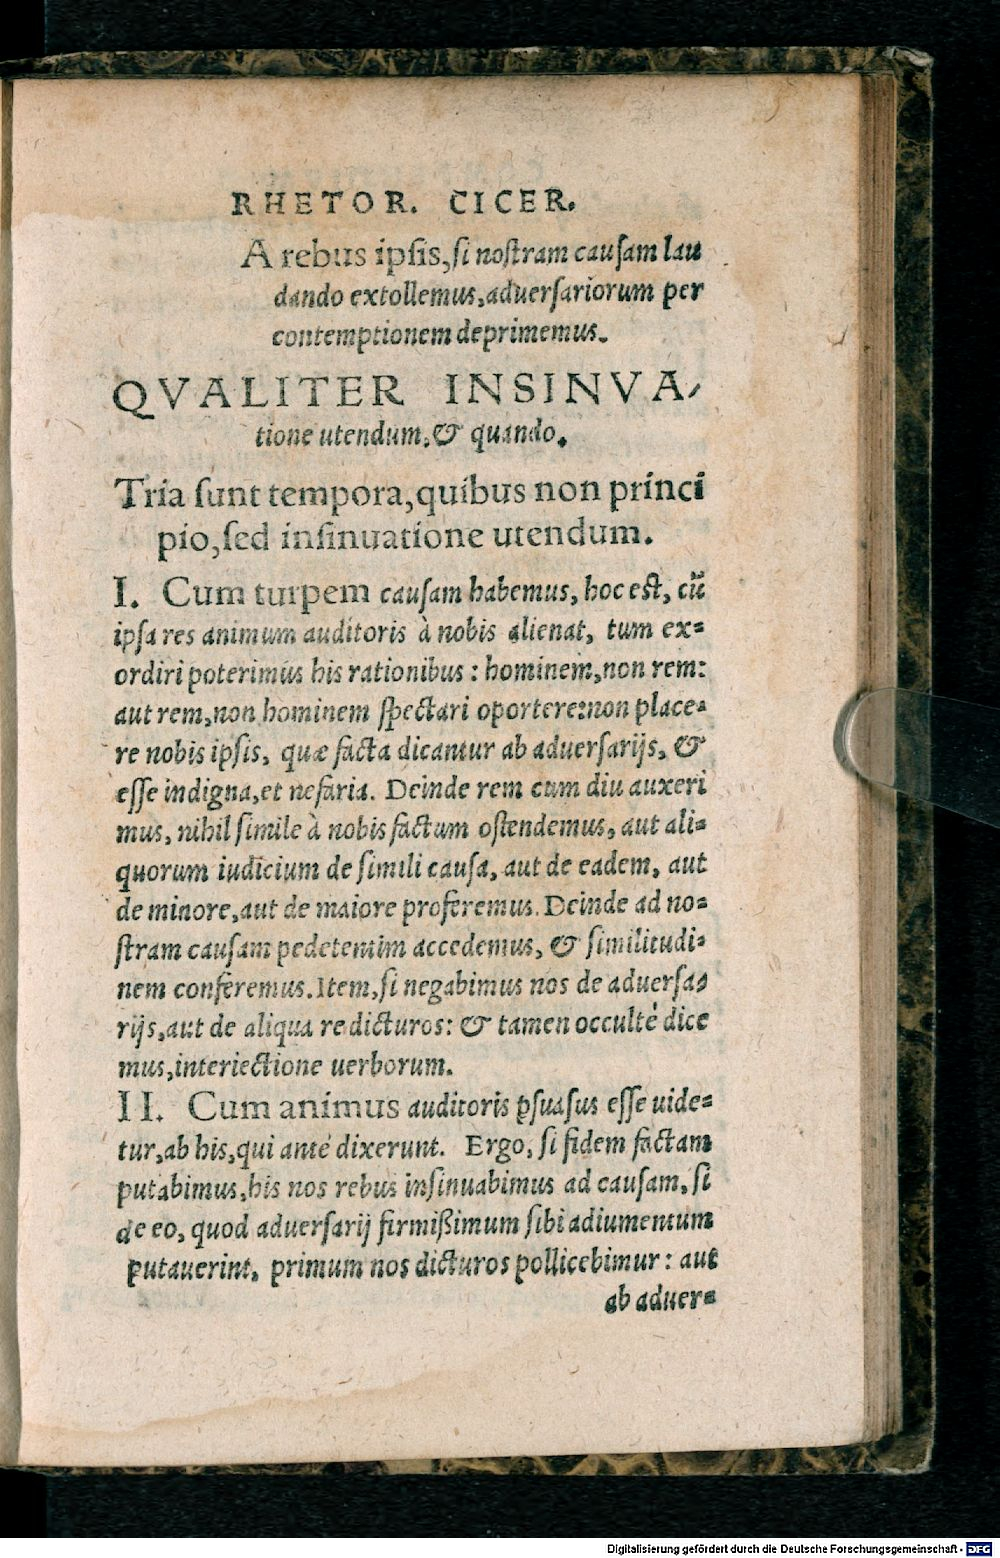 RHETOR. CICER.
A rebus ipsis, si nostram causam lau
dando extollemus, aduersariorum per
contemptionem deprimemus.
QVALITER INSINVA-
tione utendum, & quando.
Tria sunt tempora, quibus non princi
pio, sed insinuatione utendum.
I. Cum turpem causam habemus, hoc est, cũ
ipsa res animum auditoris à nobis alienat, tum ex=
ordiri poterimus his rationibus: hominem, non rem:
aut rem, non hominem spectari oportere: non place=
re nobis ipsis, quæ facta dicantur ab aduersarijs, &
esse indigna, et nefaria. Deinde rem cum diu auxeri
mus, nihil simile à nobis factum ostendemus, aut ali=
quorum iudicium de simili causa, aut de eadem, aut
de minore, aut de maiore proferemus. Deinde ad no=
stram causam pedetentim accedemus, & similitudi=
nem conferemus. Item, si negabimus nos de aduersa=
rijs, aut de aliqua re dicturos: & tamen occultè dice
mus, interiectione uerborum.
II. Cum animus auditoris ꝑsuasus esse uide=
tur, ab his, qui antè dixerunt. Ergo, si fidem factam
putabimus, his nos rebus insinuabimus ad causam, si
de eo, quod aduersarij firmißimum sibi adiumentum
putauerint, primum nos dicturos pollicebimur: aut
ab aduer=
Digitalisierung gefördert durch die Deutsche Forschungsgemeinschaft - DFG